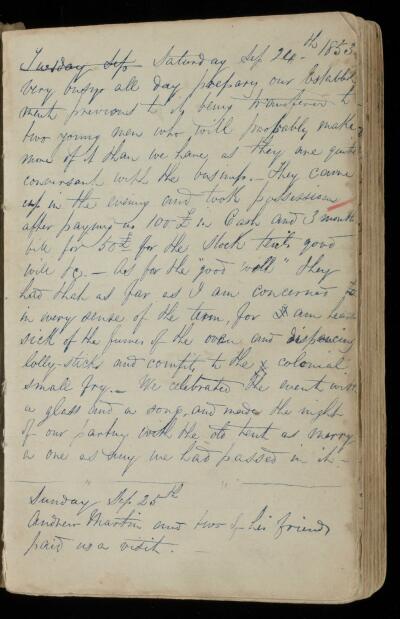 Tuesday Sep Saturday Sep 24th 1853
very busy all day preparing our Establish
ment previous to its being transferred to
two young men who will probably make
more of it than we have, as they are quite
conversant with the business. They came
up in the evening and took possession
after paying us 100£ in Cash and 3 months
bill for 50£ for the Stock tents good
will &c. — As for the "good will" they
had that as far as I am concerned
in every sense of the term, for I am
sick of the fumes of the oven and dispensing
lolly-sticks and comfits to the colonial
small fry. — We celebrated the event with
a glass and a song, and made the night
of our parting with the old tent as merry
a one as any we had passed in it —
Sunday Sep 25th
Andrew Martin and two of his friends
paid us a visit. —